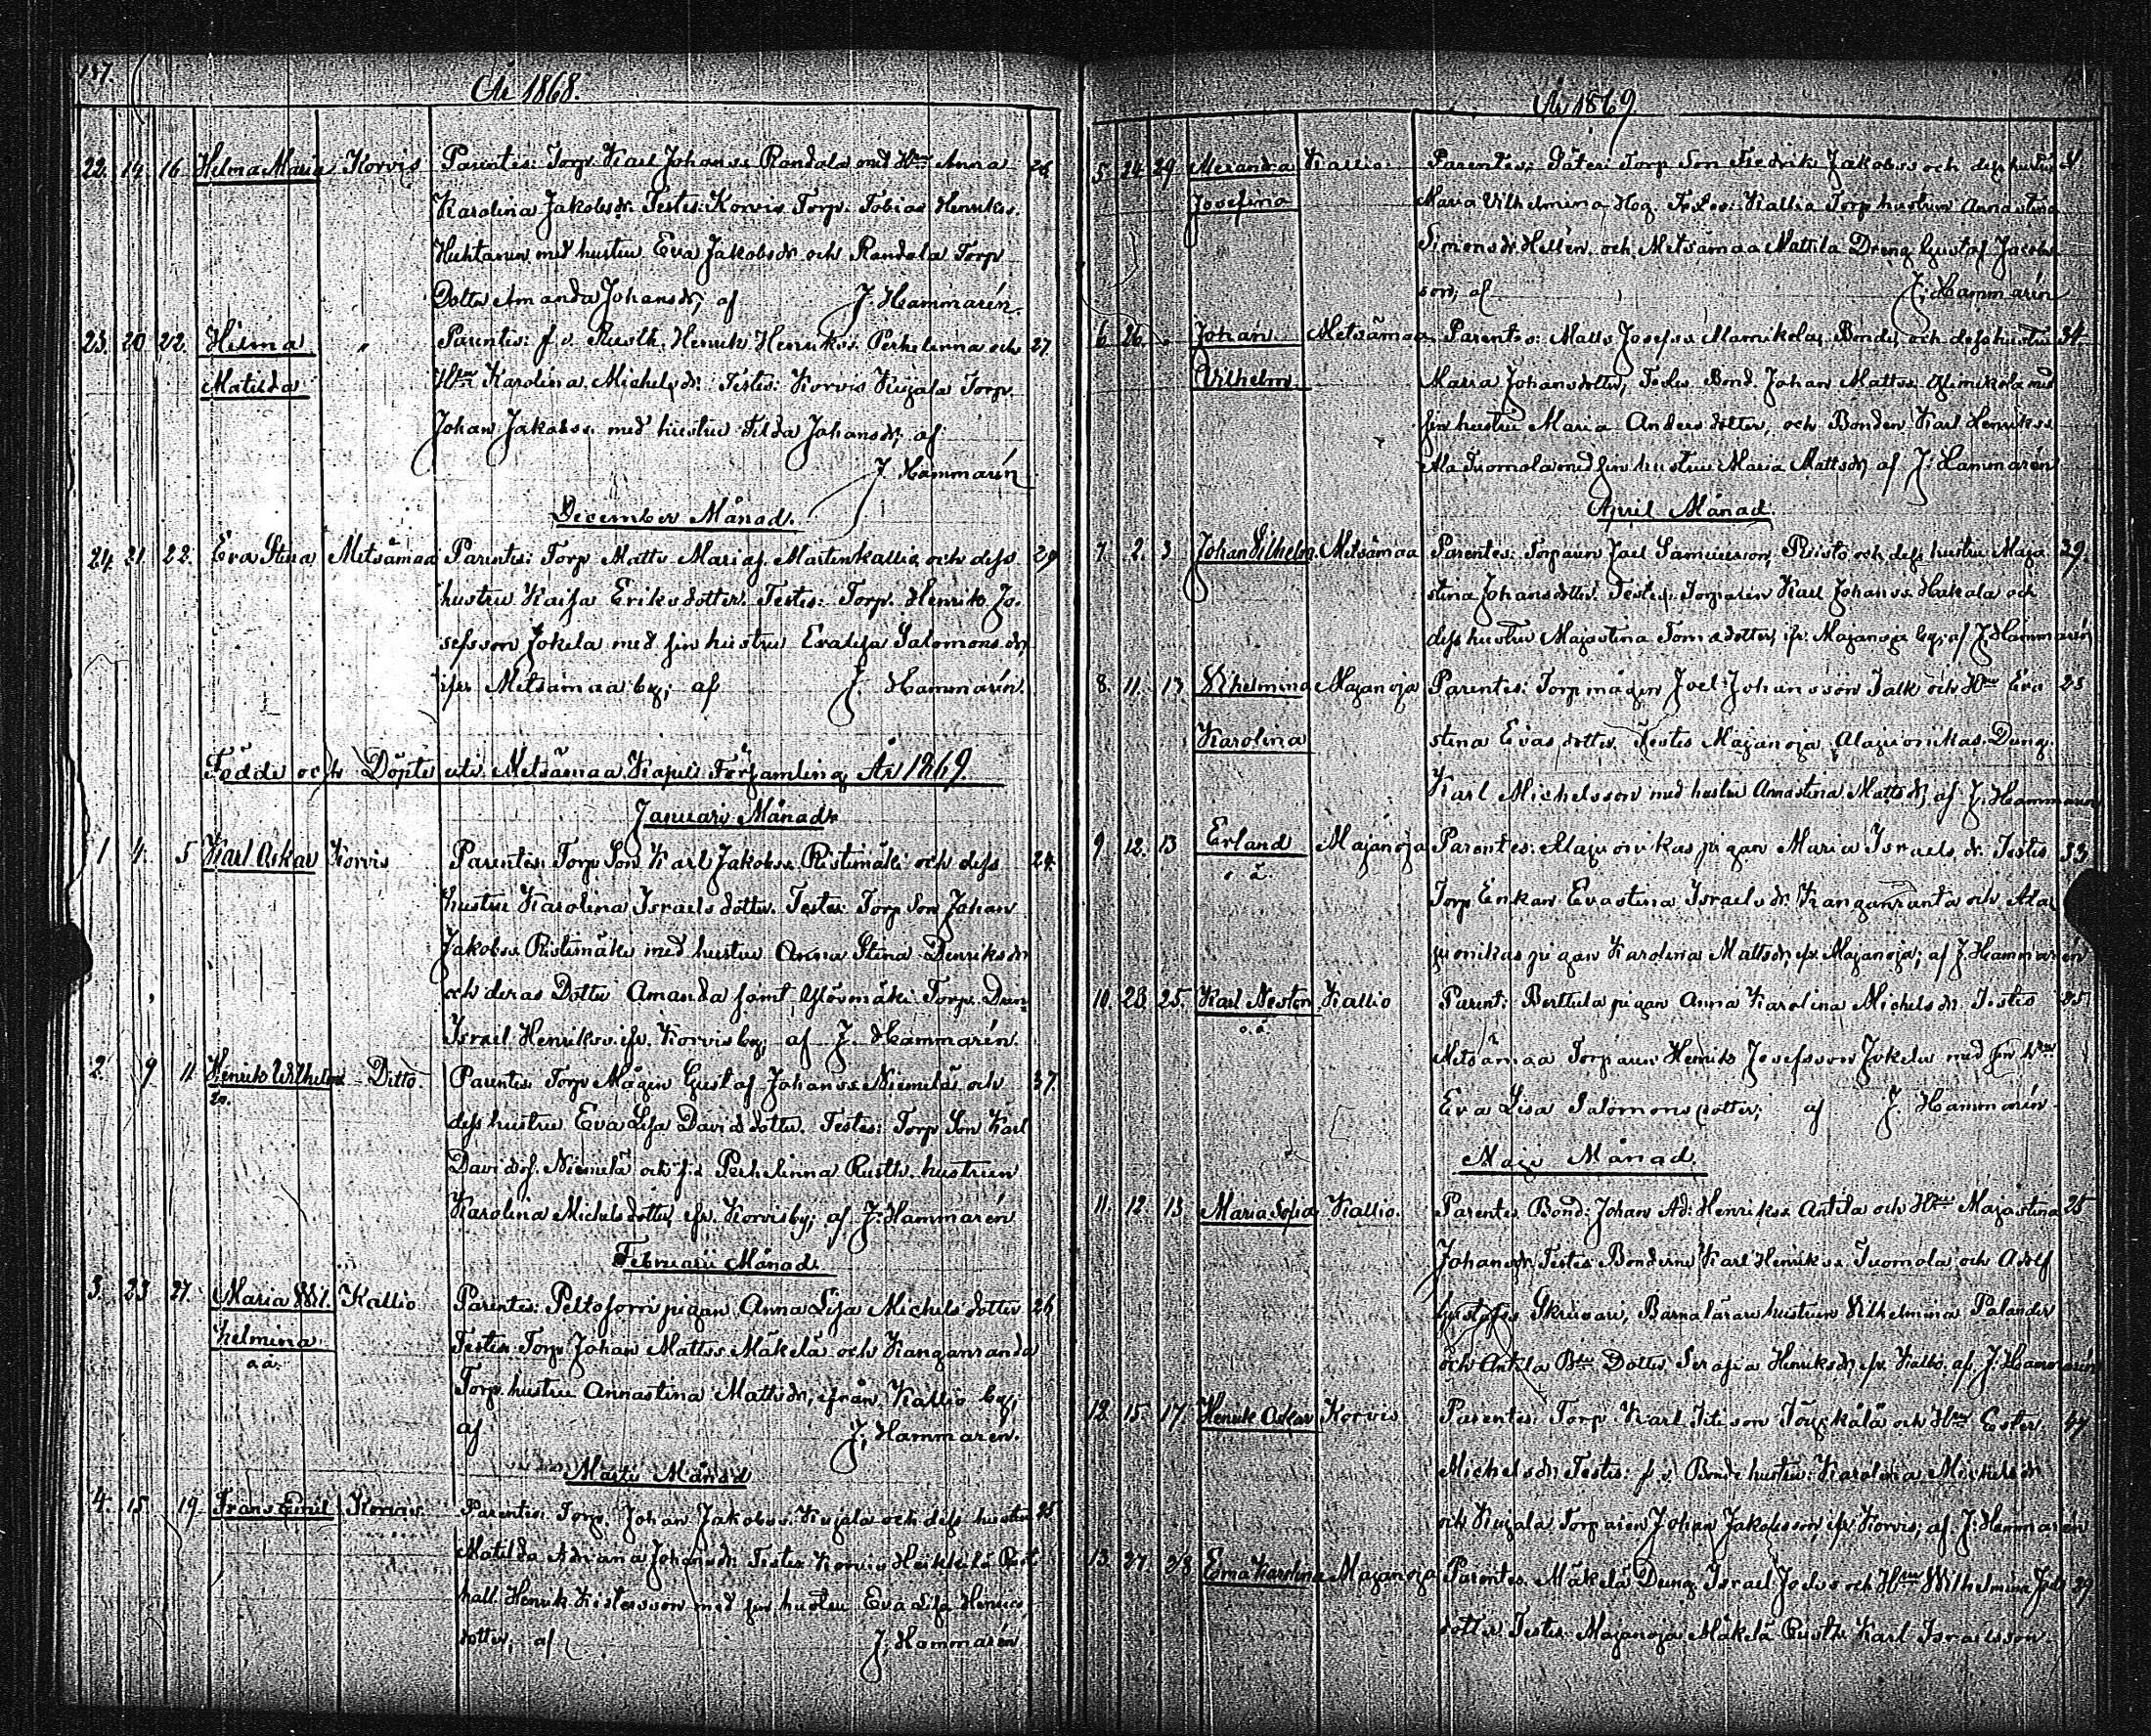 187.
År 1868.
22. 14 16 Helma Maria Korvis Parentes: Torp. Karl Johanss. Randala med Hru Anna 26.
Karolina Jakobsdr. Testes: Korvis Torp. Tobias Henrikss.
Huhtanen med hustru Eva Jakobsdr och Randala Torp
Dotter Amanda Johansdr; af J. Hammarén.
23. 20 22. Hilma " Parentes: f. v. Rusth. Henrik Henrikss. Perhelinna och 27.
Matilda Hru Karolina Michelsdr. Testes: Korvis Kujala Torp.
Johan Jakobss. med hustru Tilda Johansdr. af
J. Hammarén
December Månad.
24. 21. 22. Eva Stina Metsämaa Parentes: Torp Matts Mariaf. Martinkallio och dess 29
hustru Kaisa Eriksdotter. Testes: Torp. Henrik Jo-
sefsson Jokela med sin hustru Evalisa Salomonsdr
ifr. Metsämaa by; af J. Hammarén.
Födde och Döpte uti Metsämaa Kapell Församling År 1869.
Januari Månad.
1 4. 5 Karl Oskar Korvis Parentes: Torp. Son Karl Jakobss. Ristimäki och dess 24.
hustru Karolina Israelsdotter. Testes: Torp Son Johan
Jakobss. Ristimäki med hustru Anna Stina Henriksdr
och deras Dotter Amanda samt Torp. Dren
Israel Henrikss. ifr. Korvis by; af J. Hammarén.
2. 9 11. Henrik Wilhelm Ditto. Parentes Torp. Mågen Gustaf Johanss. Niemelä och 37.
dess hustru Eva Lisa Davidsdotter. Testes: Torp Son Karl
Davidsf. Niemelä och f.d. Perhelinna Rusth. hustrun
Karolina Michelsdotter, ifr. Korvis by; af J. Hammarén
Februarii Månad.
3. 23 27. Maria Wil- Kallio Parentes: Peltosorri pigan Anna Lisa Michelsdotter 26
helmina Testes Torp Johan Mattss. Mäkelä och Kanganranda
o.ä. Torp. hustru Annastina Mattsdr, ifrån Kallio by;
af J. Hammarén.
Martii Månad
4. 15. 19 Frans Emil Korvis. Parentes: Torp. Johan Jakobss. Kujala och dess hustru 25
Matilda Adriana Johansdr. Testes Korvis Heikkilä Rust
håll. Henrik Kristersson med sin hustru Eva Lisa Henriks-
dotter; af J. Hammarén
År 1869
5. 24 29 Alexandra Kallio: Parentes: Torp Son Fredrik Jakobss och dess hustru
Josefina Maria Vilhelmina Hog. Testes: Kallio Torp hustrun Annastina
Simonsdr. Hellén. och Metsämaa Mattila Dreng Gustaf Jacobs-
son, af J. Hammarén
6. 26. " Johan Metsämaa. Parentes: Matts Josefss. Mamikola, Bonde, och dess hustru 34.
Vilhelm Maria Johansdotter, Testes Bond. Johan Mattss. Ylimikola med
sin hustru Maria Andersdotter, och Bonden Karl Henrikss.
Ala Tuomola med sin hustru Maria Mattsdr, af J. Hammarén
April Månad.
7. 2. 3 Johan Vilhelm. Metsämaa Parentes: Torparen Joel Samuelsson, Risto och dess hustru Maja 39.
stina Johansdotter. Testes. Torparen Karl Johanss. Hakala och
dess hustru Majastina Tomasdotter, ifr. Majanoja by, af J. Hammarén
8. 11. 13 Wilhelmina Majanoja Parentes: Torpmågen Joel Johansson Talk och Hru Eva 25
Karolina stina Evasdotter. Testes Majanoja Alajuonikas Dreng.
Karl Michelsson med hustru Annastina Mattsdr, af J. Hammarén
9. 12. 13 Erland Majanoja Parentes: Alajuonikas pigan Maria Israelsdr. Testes 33
o.ä. Torp Enkan Evastina Israelsdr. Kanganranta och Ala-
juonikas pigan Karolina Mattsdr, ifr. Majanoja; af J. Hammarén
10. 23. 25. Karl Nestor Kallio Parent: Berttula pigan Anna Karolina Michelsdr. Testes 25
o.ä. Metsämaa Torparen Henrik Josefsson Jokela med sin Hru
Eva Lisa Salomonsdotter; af J. Hammarén
Maji Månad.
11. 12. 13 Maria Sofia Kallio. Parentes Bond: Johan Ad: Henrikss. Antila och Hru Majastina 25
Johansdr. Testes Bönderne Karl Henrikss. Tuomola och Adolf
Gustafss Skrivari, Barnalärare hustrun Vilhelmina Palander
och Antila Bds Dotter Serafia Henriksdr, ifr. Kallio. af J. Hammarén
12. 15. 17. Henrik Oskar Korvis Parentes: Torp Karl och Hru Ester 47
Michelsdr. Testes: f. v. Bonde hustru Karolina Michelsdr
och Kujala Torparen Johan Jakobsson, ifr Korvis; af J. Hammarén
13. 27. 28 Edma Karolina Majanoja Parentes. Mäkelä Dreng Israel Joelss och Hru Wilhelmina Joels 29
dotter. Testes. Majanoja Mäkelä Rusth. Karl Israelsson.